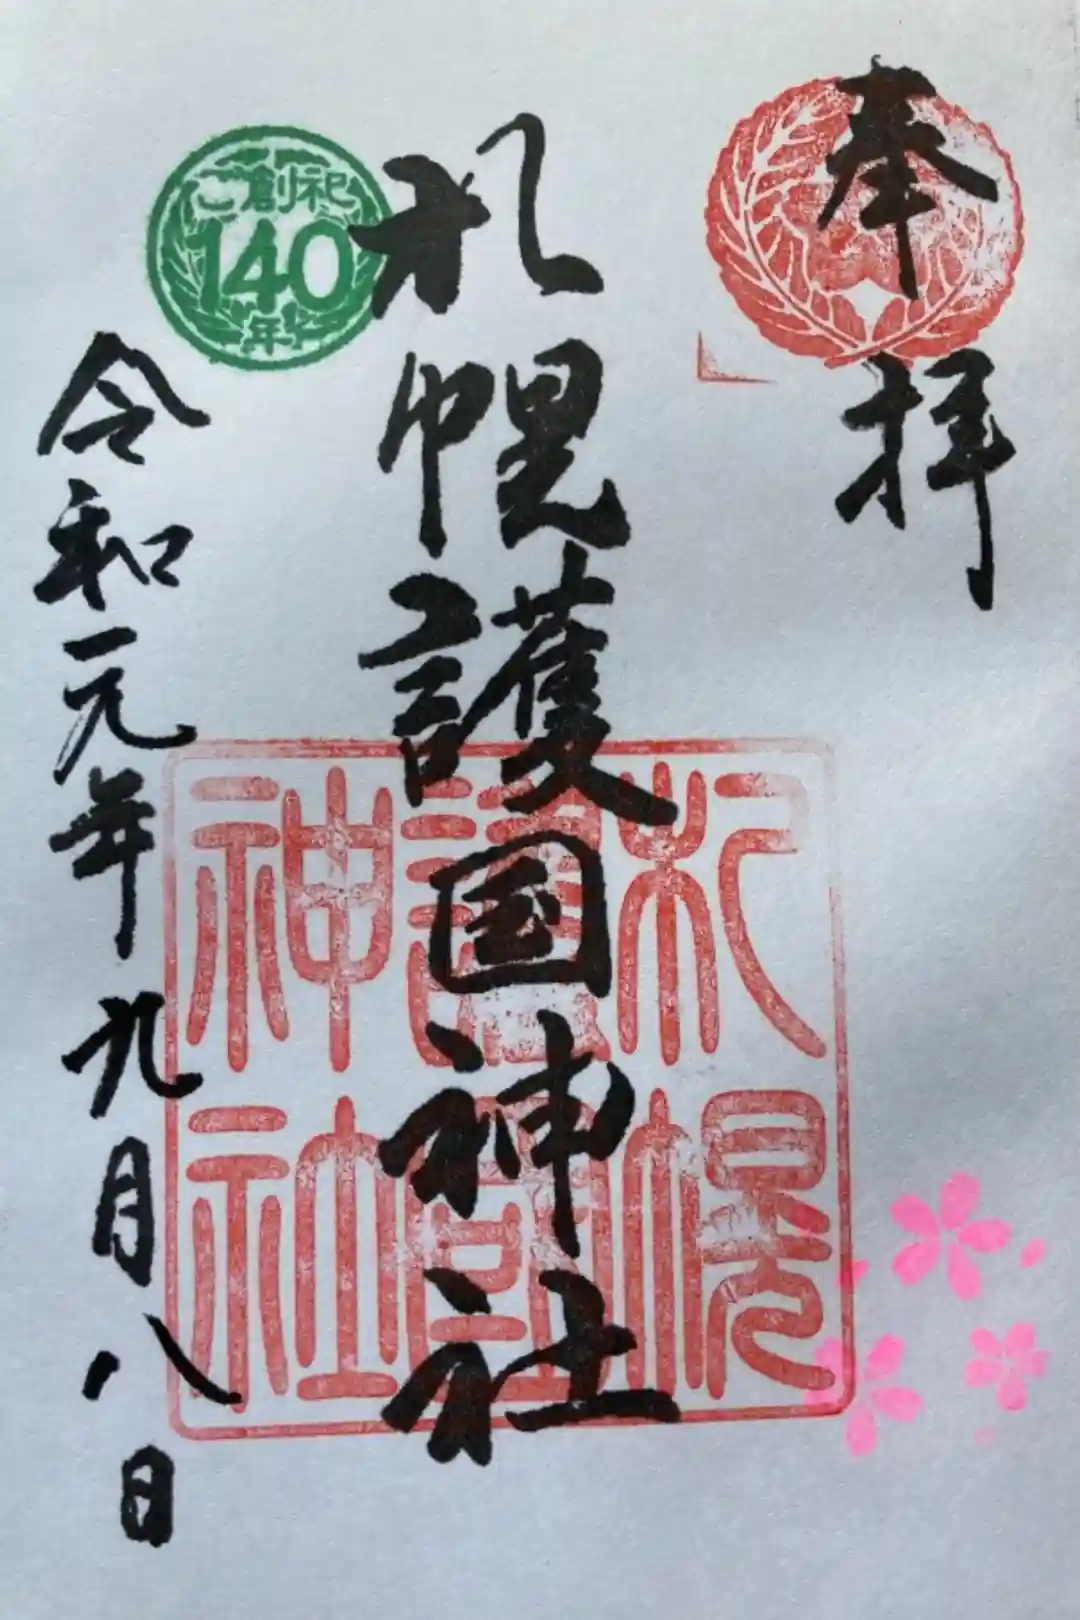 奉拝
札幌護国神社
令和元年九月八日
ご創祀
140
年
札幌
護国
神社